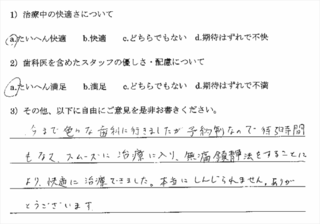 1) 治療中の快適さについて
a.たいへん快適 b.快適 c.どちらでもない d.期待はずれで不快
2) 歯科医を含めたスタッフの優しさ・配慮について
a.たいへん満足 b.満足 c.どちらでもない d.期待はずれで不満
3) その他、以下に自由にご意見を是非お書きください。
今まで色々な歯科に行きましたが予約制なので待ち時間
もなく、スムーズに治療に入り、無痛鎮静法をすることに
より、快適に治療できました。本当にしんじられません。ありが
とうございます